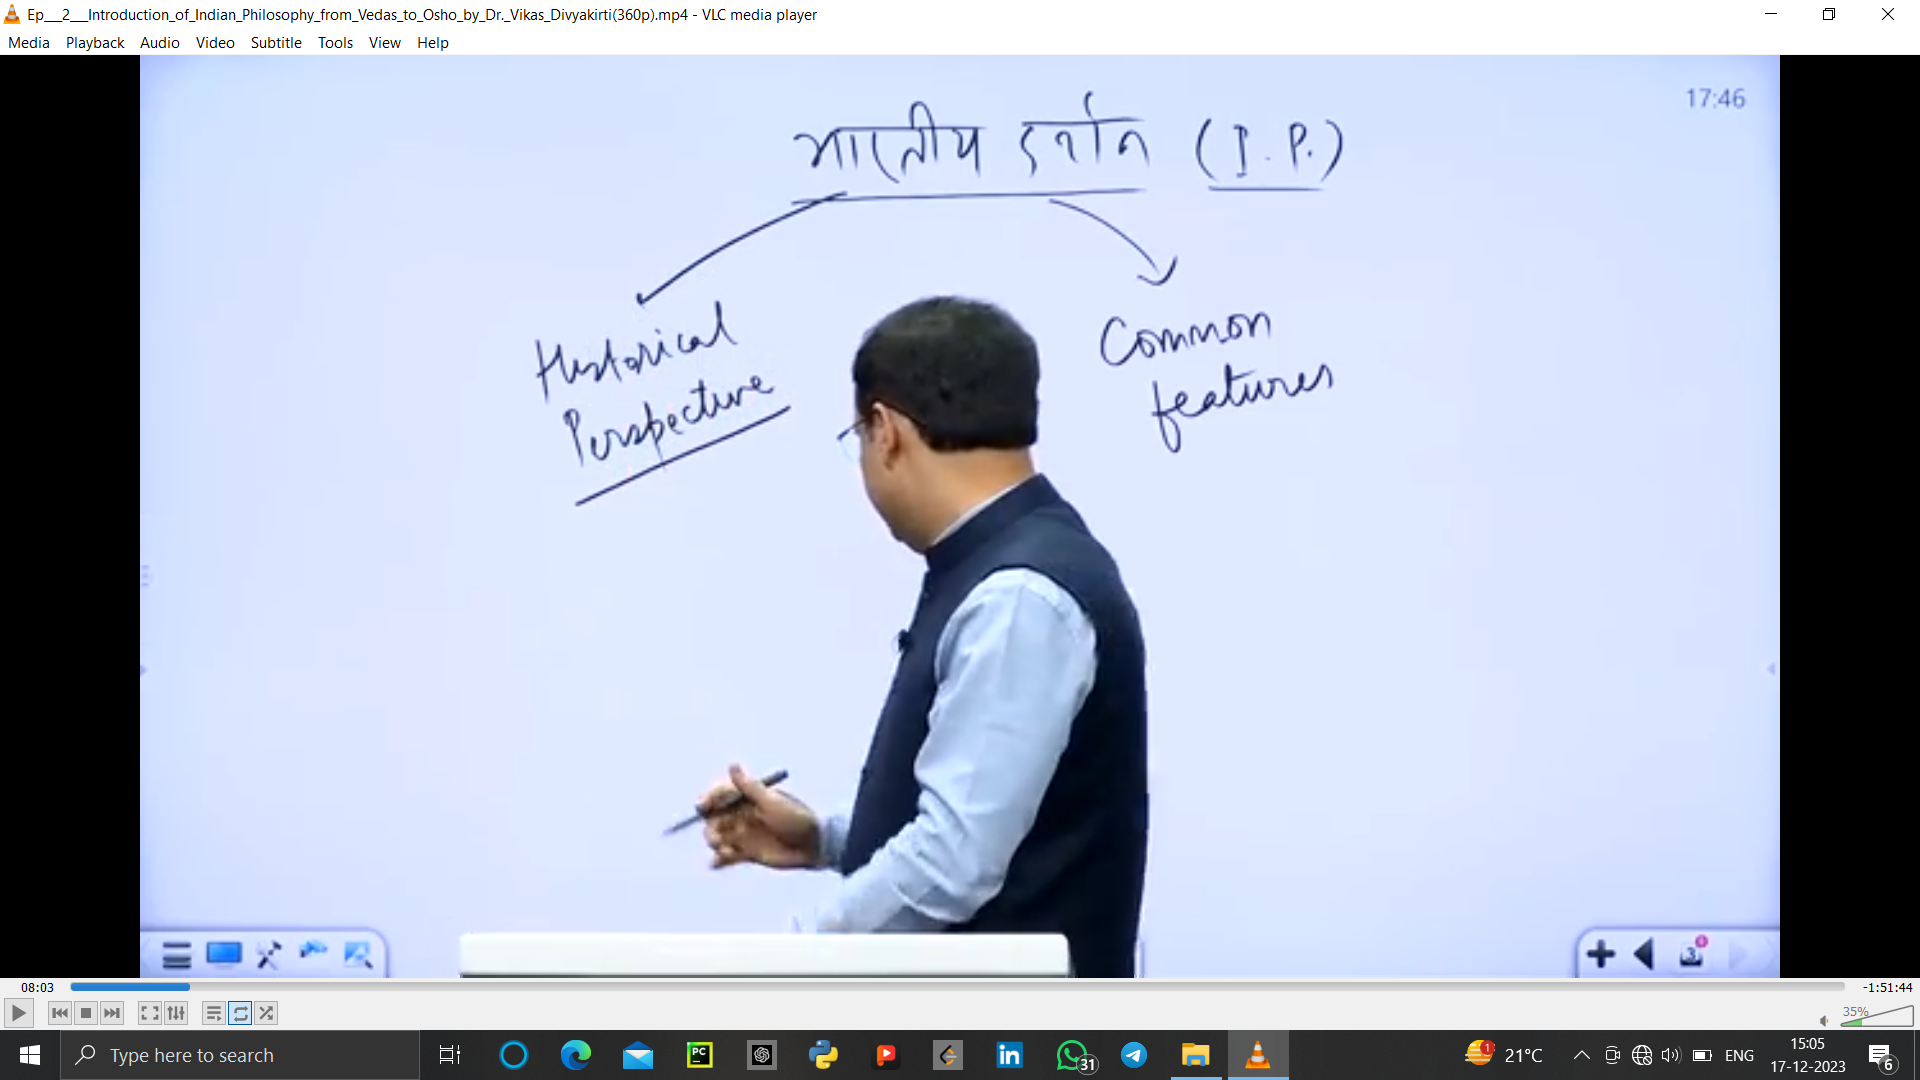 Ep___2___Introduction_of_Indian_Philosophy_from_Vedas_to_Osho_by_Dr._Vikas_Divyakirti(360p).mp4 - VLC media player
Media Playback Audio Video Subtitle Tools View Help
17:46
भारतीय दर्शन (I.P.)
Historical
Perspective
Common
features
3
08:03
-1:51:44
35%
Type here to search
PC
31
1
21°C
ENG
15:05
17-12-2023
6